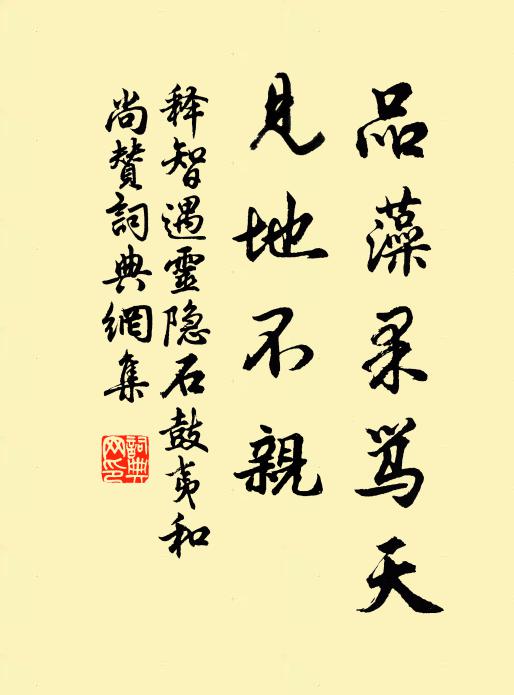 品藻骂天
見地不親
释智遇靈隐石鼓夷和
尚贊詞典網集
詞典
网印